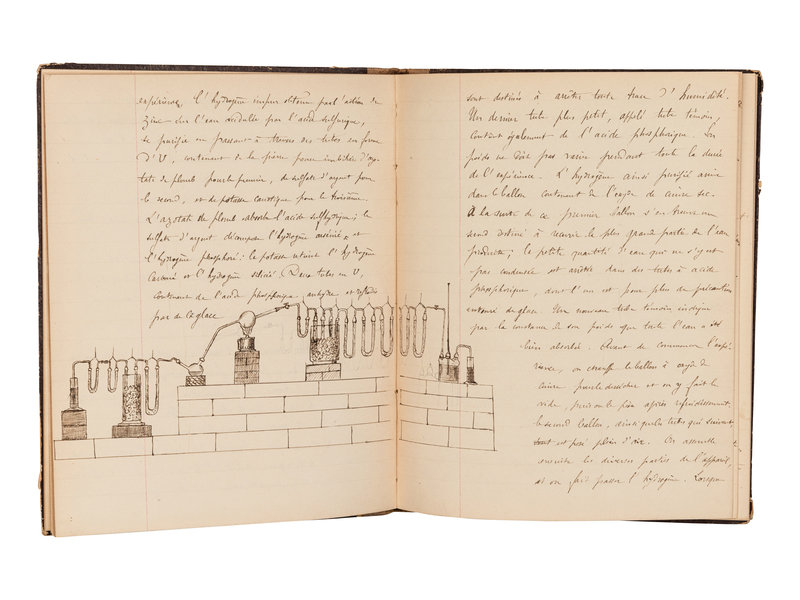 expérience, l'hydrogène impur obtenu par l'action du
zinc sur l'eau acidulée par l'acide sulfurique,
se purifie en passant à travers des tubes en forme
d'U, contenant de la pierre ponce imbibée d'azo-
tate de plomb pour le premier, de sulfate d'argent pour
le second, et de potasse caustique pour le troisième.
L'azotate de plomb absorbe l'acide sulfhydrique; le
sulfate d'argent décompose l'hydrogène arsénié et
l'hydrogène phosphoré: la potasse retient l'hydrogène
carboné et l'hydrogène silicié. Deux tubes en U,
contenant de l'acide phosphorique anhydre et refroidis
par de la glace
sont destinés à arrêter toute trace d'humidité.
Un dernier tube plus petit, appelé tube témoin,
contient également de l'acide phosphorique. Son
poids ne doit pas varier pendant toute la durée
de l'expérience. L'hydrogène ainsi purifié arrive
dans le ballon contenant de l'oxyde de cuivre sec.
A la suite de ce premier ballon s'en trouve un
second destiné à recevoir la plus grande partie de l'eau
produite; la petite quantité d'eau qui ne s'y est
pas condensée est arrêtée dans des tubes à acide
phosphorique, dont l'un est pour plus de précaution
entouré de glace. Un nouveau tube témoin indique
par la constance de son poids que toute l'eau a été
bien absorbée. Avant de commencer l'expé-
rience, on chauffe le ballon à oxyde de
cuivre pour le dessécher et on y fait le
vide, puis on le pèse après refroidissement.
le second ballon, ainsi que les tubes qui suivent
tout est pesé plein d'air. On assemble
ensuite les diverses parties de l'appareil,
et on fait passer l'hydrogène. Lorsque